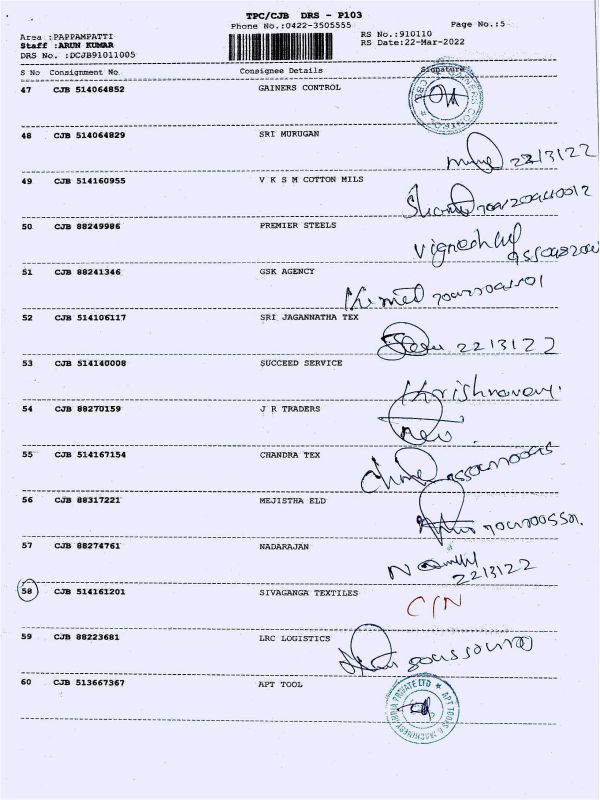 TPC/CJB DRS - P103
Phone No.:0422-3505555
Page No.:5
Area :PAPPAMPATTI
Staff :ARUN KUMAR
DRS No. :DCJB91011005
RS No.:910110
RS Date:22-Mar-2022
S No Consignment No Consignee Details Signature
47 CJB 514064852 GAINERS CONTROL
48 CJB 514064829 SRI MURUGAN
22/3/22
49 CJB 514160955 V K S M COTTON MILS
50 CJB 88249986 PREMIER STEELS
Vignesh
51 CJB 88241346 GSK AGENCY
52 CJB 514106117 SRI JAGANNATHA TEX
22/3/22
53 CJB 514140008 SUCCEED SERVICE
54 CJB 88270159 J R TRADERS
55 CJB 514167154 CHANDRA TEX
56 CJB 88317221 MEJISTHA ELD
57 CJB 88274761 NADARAJAN
22/3/22
58 CJB 514161201 SIVAGANGA TEXTILES C/N
59 CJB 88223681 LRC LOGISTICS
60 CJB 513667367 APT TOOL
APT TOOLS & MACHINERY INDIA PRIVATE LTD